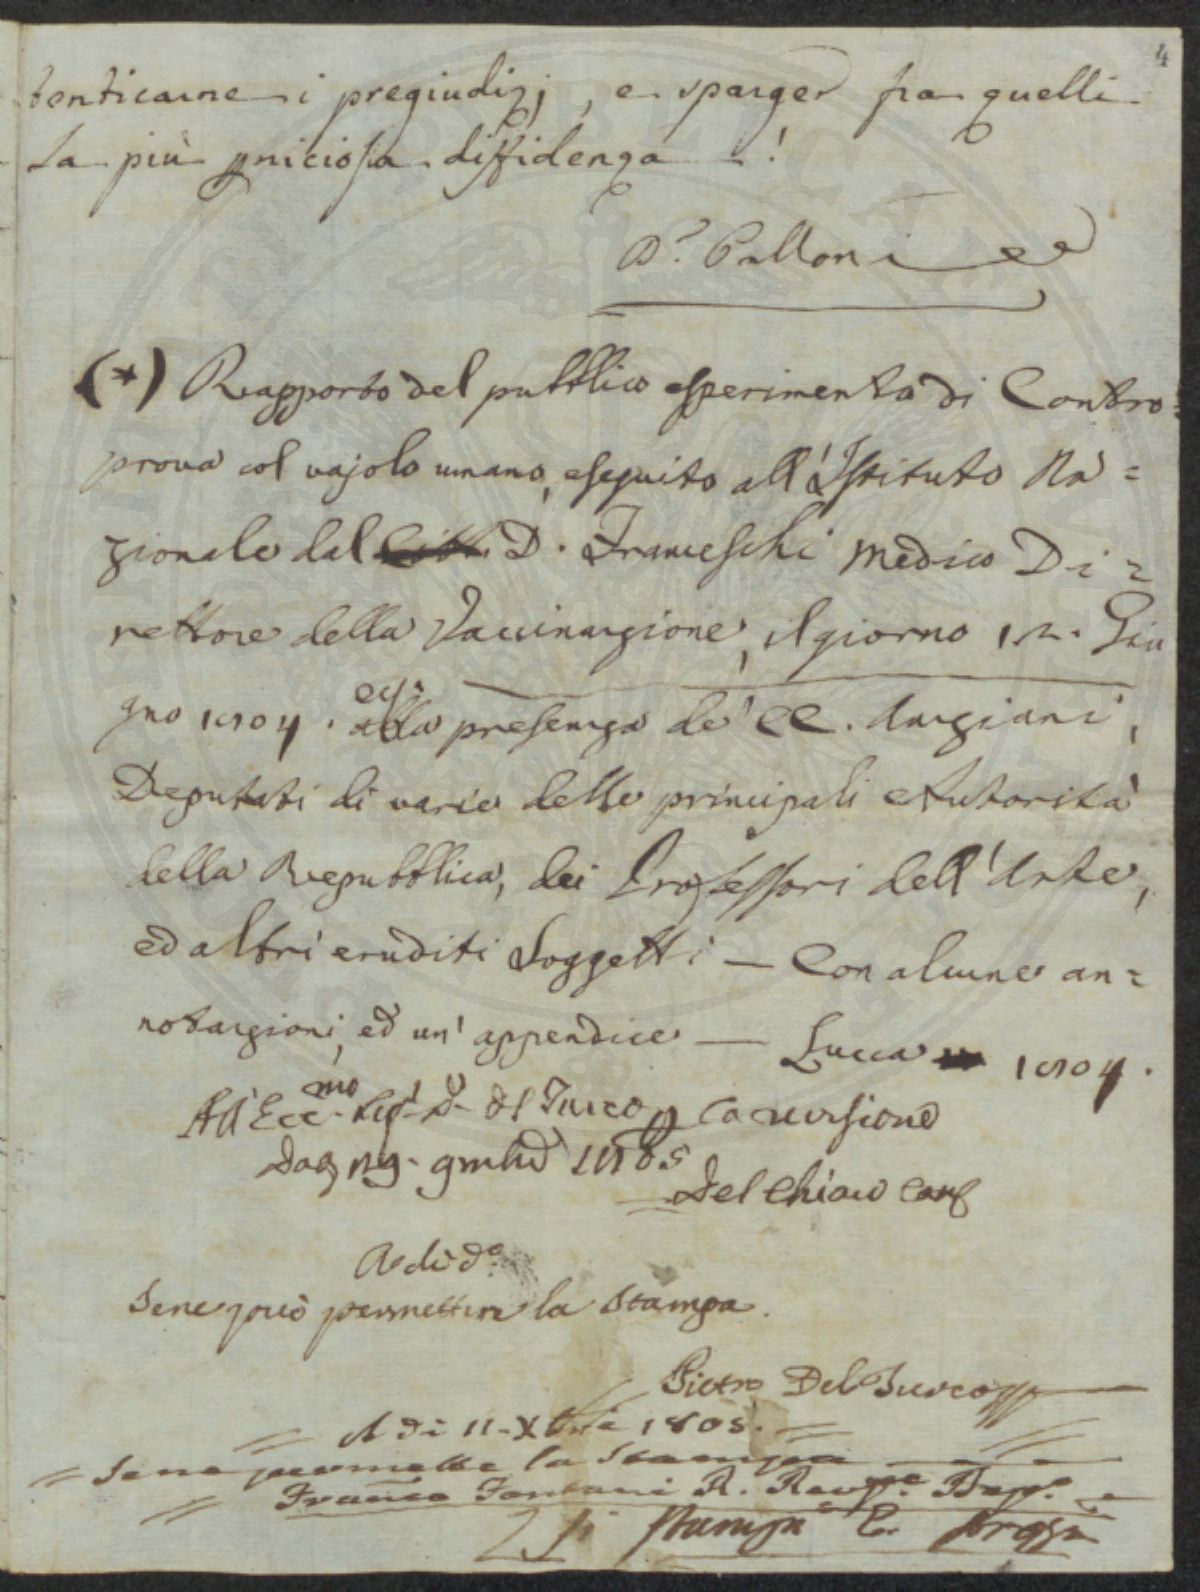 4
tenticarne i pregiudizj, e sparger fra quelli
la più perniciosa diffidenza - !
D.r Palloni
(*) Rapporto del pubblico esperimento di Contro=
prova col vajolo umano, eseguito all'Istituto Na=
zionale dal D. Franceschi Medico Di=
rettore della Vaccinazione, il giorno 12. Giu
gno 1804. alla presenza de' CC. Anziani,
Deputati di varie delle principali Autorità
della Repubblica, dei Professori dell'Arte,
ed altri eruditi Soggetti — Con alcune an=
notazioni, ed un' appendice — Lucca 1804.
All' Ecc.mo Sig.r D. del Turco p. la revisione
Del Chiaro Canc
A di d.o
Se ne può permettere la stampa.
Pietro Del Turco
A di 11 Xbre 1805.
Se ne permette la Stampa
Franc.o Fontani R. Rev.re
Si Stampi